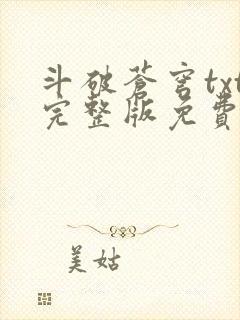 斗破蒼穹txt
完整版免費
美姑